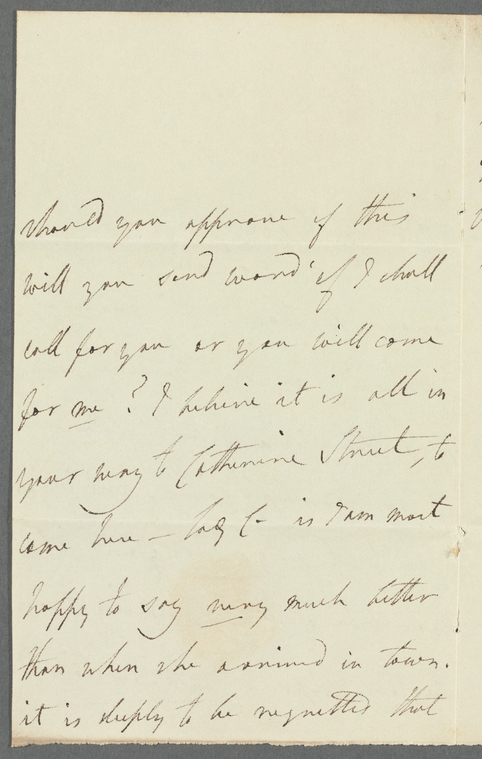 should you approve of this
will you send word if I shall
call for you or you will come
for me? I believe it is all in
your way to Catherine Street, to
come here – Lady C– is I am most
happy to say very much better
than when she arrived in town.
it is deeply to be regretted that